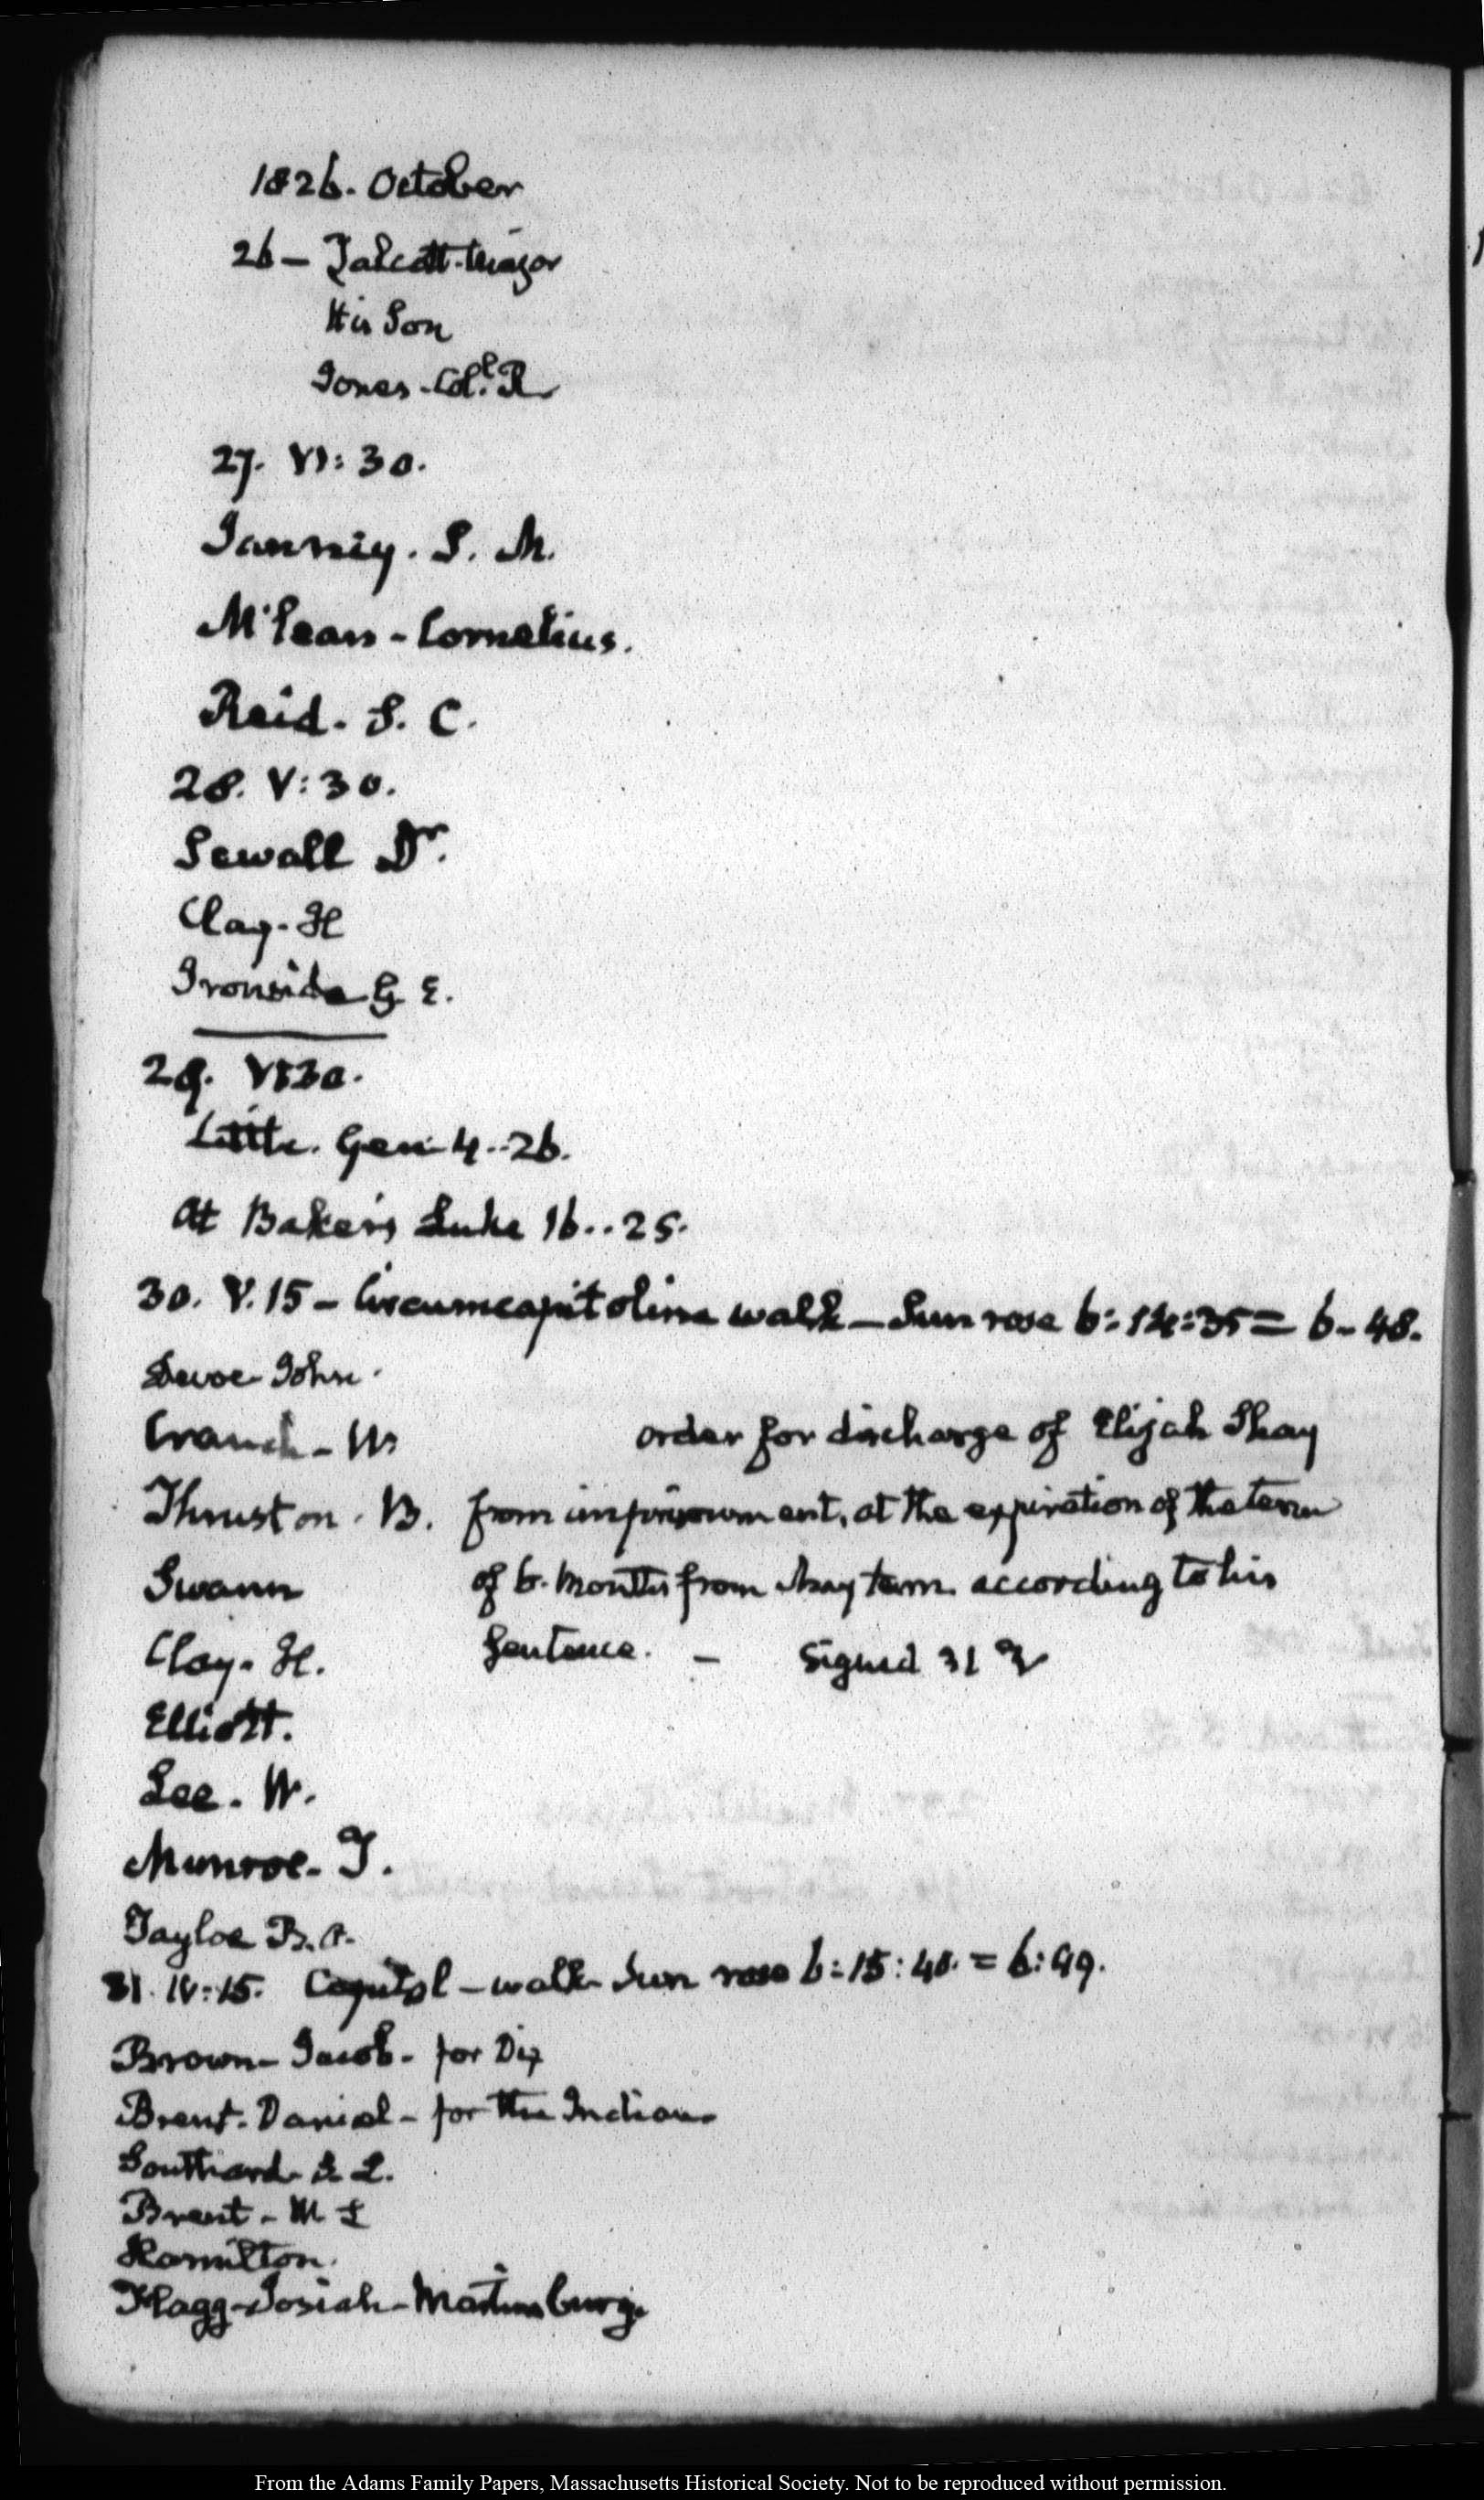 1826. October
26 – Talcott. Major
His Son
Jones – Col.l R
27. VI: 30.
Janney. S. M.
McLean – Cornelius.
Reid. S. C.
28. V: 30.
Sewall Dr.
Clay – H
Ironside G E.
29. V:30.
Little. Gen 4..26.
At Baker's Luke 16..25.
30. V.15 – Circumcapitoline walk – Sun rose 6: 14:35 = 6 – 48.
Devoe John.
Cranch – W. order for discharge of Elijah Shay
Thruston. B. from imprisonment, at the expiration of the term
Swann of 6. months from May term according to his
Clay. H. Sentence. – Signed 31
Elliott.
Lee. W.
Munroe – T.
Tayloe B. O.
31. IV:15. Capitol – walk Sun rose 6:15:40. = 6:49.
Brown – Jacob – for Dix
Brent. Daniel – for the Indians
Southard S. L.
Brent – W L
Hamilton.
Flagg – Josiah – Martinsburg.
From the Adams Family Papers, Massachusetts Historical Society. Not to be reproduced without permission.